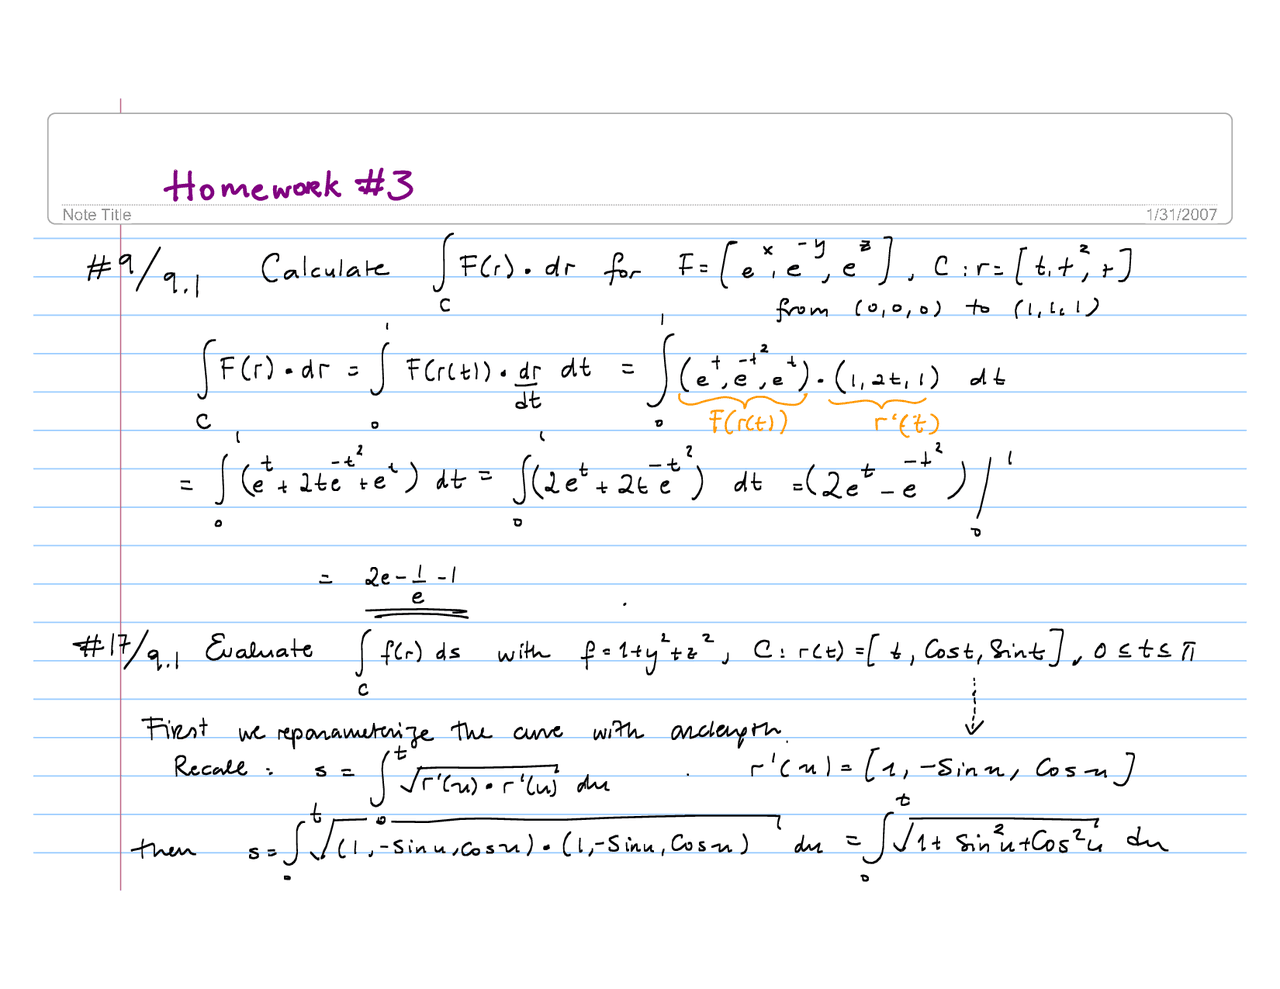 Homework #3
Note Title 1/31/2007
#9/9.1 Calculate ∫_C F(r)·dr for F=[e^x, e^-y, e^z], C: r=[t, t^2, t]
from (0,0,0) to (1,1,1)
∫_C F(r)·dr = ∫_0^1 F(r(t))·dr/dt dt = ∫_0^1 (e^t, e^-t^2, e^t)·(1,2t,1) dt
F(r(t)) r'(t)
= ∫_0^1 (e^t + 2te^-t^2 + e^t) dt = ∫_0^1 (2e^t + 2te^-t^2) dt = (2e^t - e^-t^2)|_0^1
= 2e - 1/e - 1
#17/9.1 Evaluate ∫_C f(r) ds with f=1+y^2+z^2, C: r(t)=[t, Cost, Sint], 0≤t≤π
First we reparameterize the curve with arclength.
Recall: s = ∫_0^t √(r'(u)·r'(u)) du . r'(u)=[1, -Sinu, Cosu]
then s=∫_0^t √((1,-Sinu,Cosu)·(1,-Sinu,Cosu)) du = ∫_0^t √(1+Sin^2u+Cos^2u) du